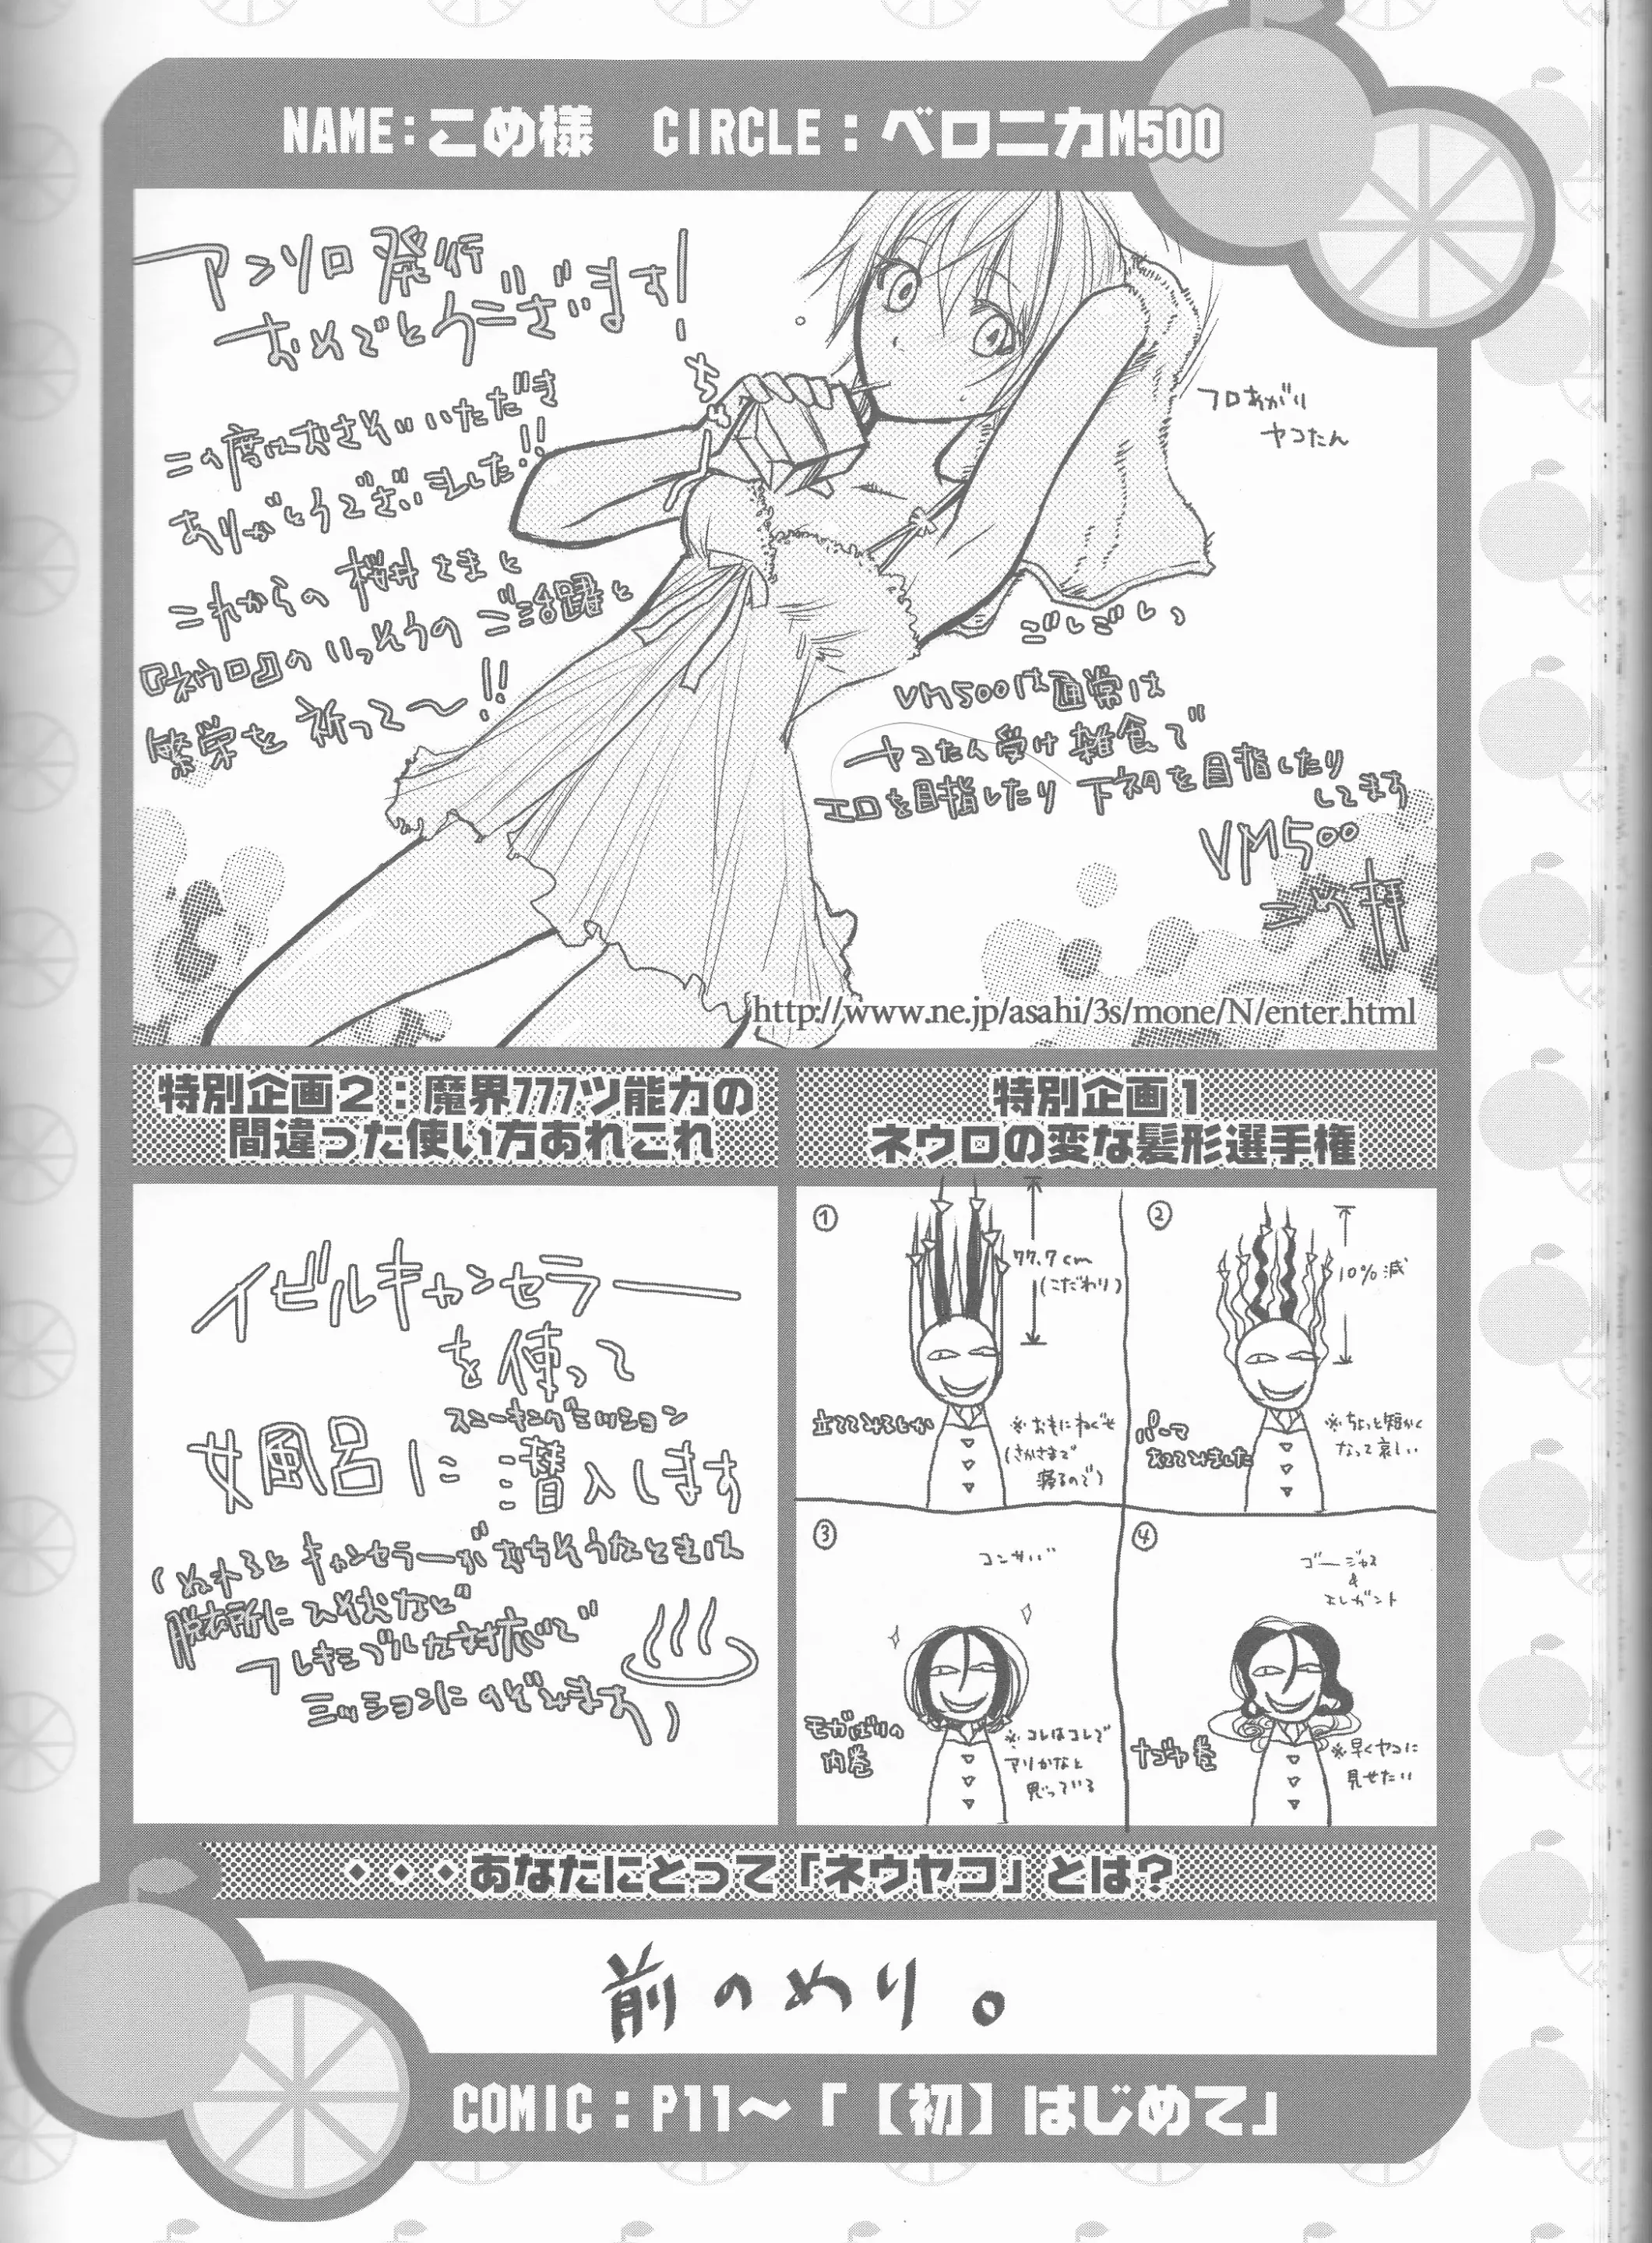 NAME:こめ様　CIRCLE：ベロニカM500
アンソロ発行
おめでとうございます!
この度はおさそいいただき
ありがとうございました!!
これからの桜井さまと
『ネウロ』のいっそうのご活躍と
繁栄を祈って〜!!
ちゅー
フロあがり
ヤコたん
ごしごしっ
VM500は通常は
ヤコたん受け雑食で
エロを目指したり下ネタを目指したり
してます
VM500
こめ拝
http://www.ne.jp/asahi/3s/mone/N/enter.html
特別企画1
ネウロの変な髪形選手権
①
77.7cm
(こだわり)
立ててみるとか
※おもにねぐせ
(さかさまで
寝るので)
②
10%減
パーマ
あててみました
※ちょっと短かく
なって哀しい
③
コンサバ
モガばりの
内巻
※コレはコレで
アリかなと
思っている
④
ゴージャス
&
エレガント
ナゴヤ巻
※早くヤコに
見せたい
特別企画2：魔界777ツ能力の
間違った使い方あれこれ
イビルキャンセラー
を使って
スニーキングミッション
女風呂に潜入します
(ぬれるとキャンセラーがおちそうなときは
脱衣所にひそむなど
フレキシブルな対応で
ミッションにのぞみます)
・・・あなたにとって「ネウヤコ」とは？
前のめり。
COMIC：P11〜「【初】はじめて」